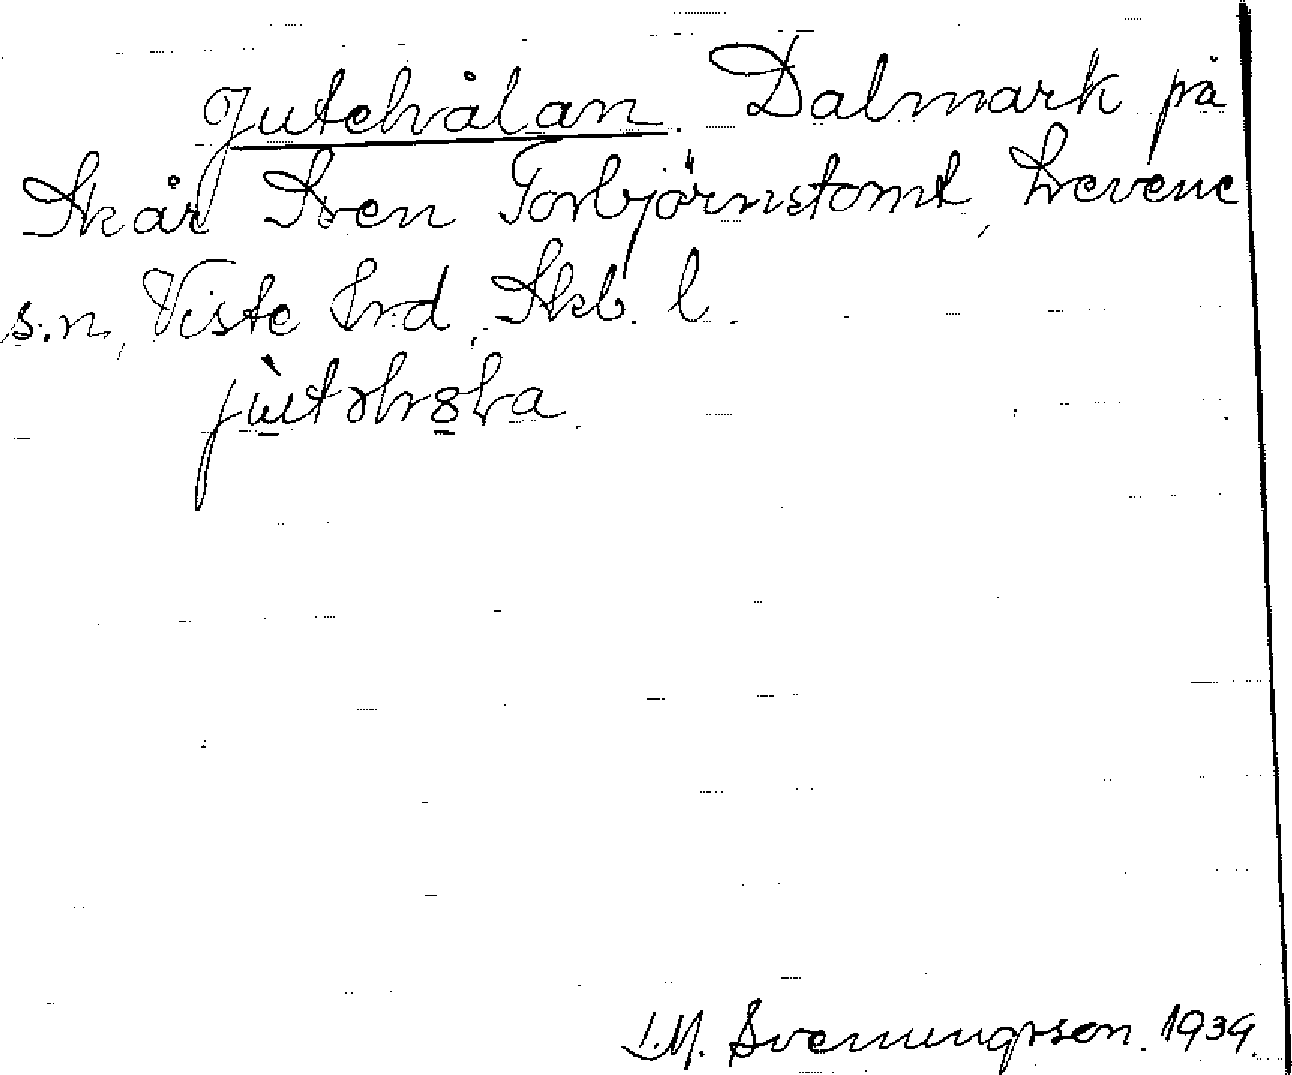 Jutehålan. Dalmark på
Skår Sven Torbjörnstomt, Levene
s:n, Viste hrd, Skb. l.
J. M. Svenungsson. 1939.